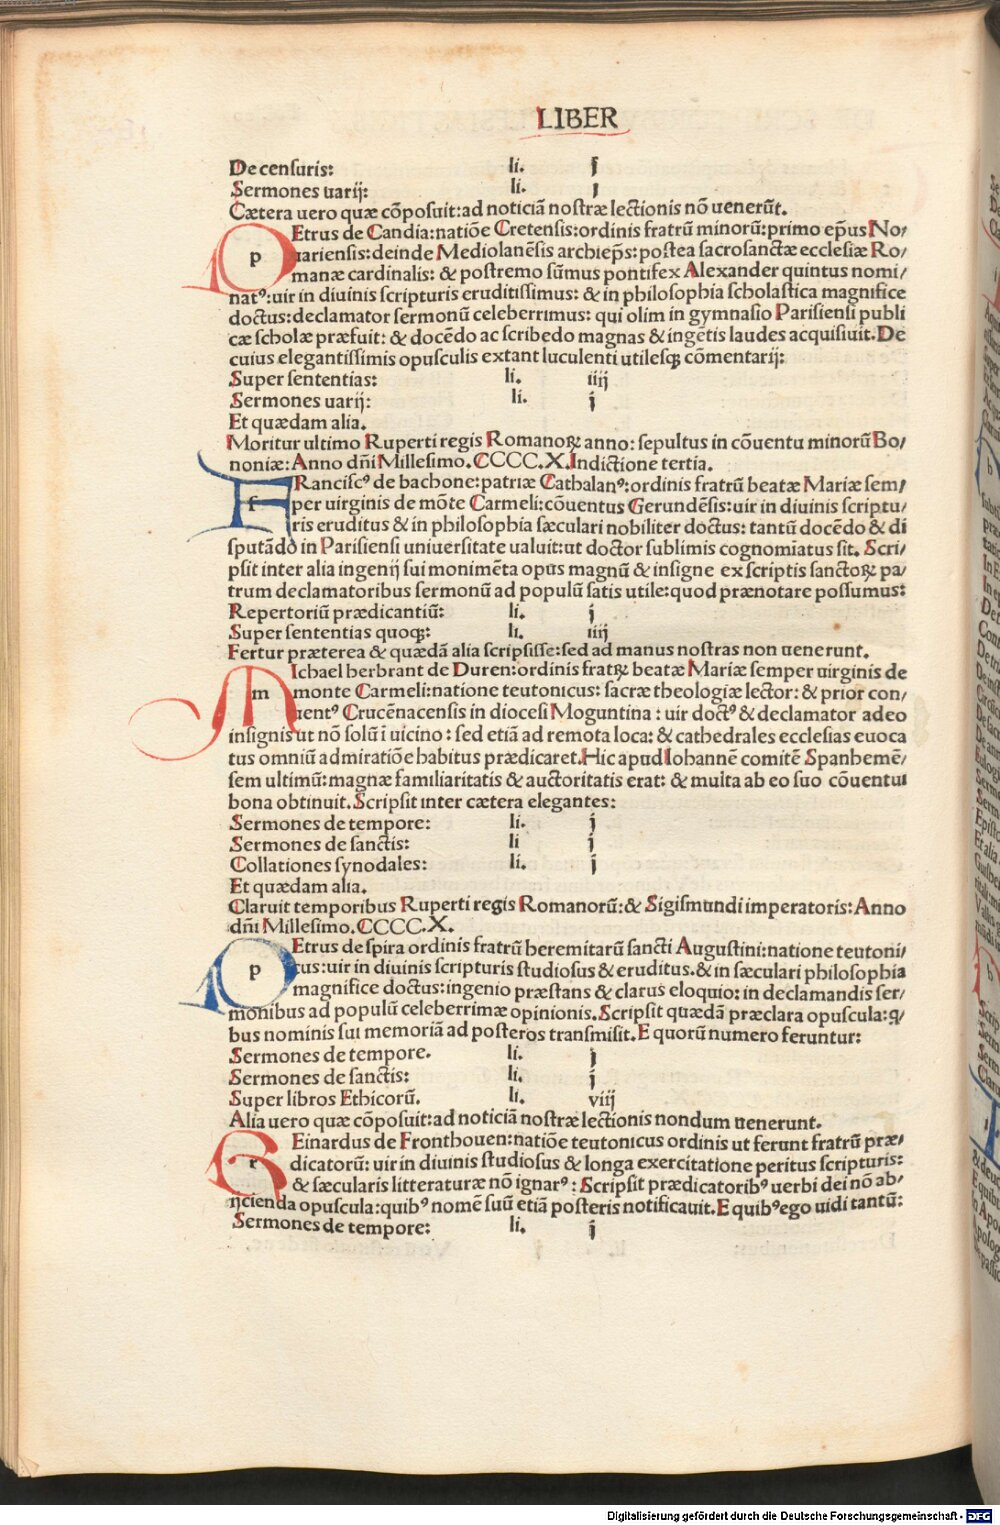 LIBER
De censuris: li. j
Sermones uarij: li. j
Cætera uero quæ cõposuit:ad noticiã nostræ lectionis nõ uenerũt.
PEtrus de Candia:natiõe Cretensis:ordinis fratrũ minorũ:primo ep̃us No/
uariensis:deinde Mediolanẽsis archiep̃s:postea sacrosanctæ ecclesiæ Ro/
manæ cardinalis: & postremo sũmus pontifex Alexander quintus nomi/
natꝰ:uir in diuinis scripturis eruditissimus: & in philosophia scholastica magnifice
doctus:declamator sermonũ celeberrimus: qui olim in gymnasio Parisiensi publi
cæ scholæ præfuit: & docẽdo ac scribedo magnas & ingẽtis laudes acquisiuit.De
cuius elegantissimis opusculis extant luculenti utilesq; cõmentarij:
Super sententias: li. iiij
Sermones uarij: li. j
Et quædam alia.
Moritur ultimo Ruperti regis Romanoꝝ anno: sepultus in cõuentu minorũ Bo/
noniæ:Anno dñi Millesimo.CCCC.X.Indictione tertia.
FRanciscꝰ de bachone:patriæ Cathalanꝰ:ordinis fratrũ beatæ Mariæ sem/
per uirginis de mõte Carmeli:cõuentus Gerundẽsis:uir in diuinis scriptu/
ris eruditus & in philosophia sæculari nobiliter doctus: tantũ docẽdo & di
sputãdo in Parisiensi uniuersitate ualuit:ut doctor sublimis cognomiatus sit. Scri/
psit inter alia ingenij sui monimẽta opus magnũ & insigne ex scriptis sanctoꝝ pa/
trum declamatoribus sermonũ ad populũ satis utile:quod prænotare possumus:
Repertoriũ prædicantiũ: li. j
Super sententias quoq;: li. iiij
Fertur præterea & quædã alia scripsisse:sed ad manus nostras non uenerunt.
MIchael herbrant de Duren:ordinis fratꝝ beatæ Mariæ semper uirginis de
monte Carmeli:natione teutonicus: sacræ theologiæ lector: & prior con/
uentꝰ Crucẽnacensis in diocesi Moguntina : uir doctꝰ & declamator adeo
insignis ut nõ solũ ĩ uicino : sed etiã ad remota loca: & cathedrales ecclesias euoca
tus omniũ admiratiõe habitus prædicaret.Hic apud Iohannẽ comitẽ Spanhemẽ/
sem ultimũ: magnæ familiaritatis & auctoritatis erat: & multa ab eo suo cõuentui
bona obtinuit.Scripsit inter cætera elegantes:
Sermones de tempore: li. j
Sermones de sanctis: li j
Collationes synodales: li. j
Et quædam alia.
Claruit temporibus Ruperti regis Romanorũ:& Sigismundi imperatoris:Anno
dñi Millesimo.CCCC.X.
PEtrus de spira ordinis fratrũ heremitarũ sancti Augustini:natione teutoni/
cus:uir in diuinis scripturis studiosus & eruditus.& in sæculari philosophia
magnifice doctus:ingenio præstans & clarus eloquio: in declamandis ser/
monibus ad populũ celeberrimæ opinionis.Scripsit quædã præclara opuscula:q̃
bus nominis sui memoriã ad posteros transmisit.E quorũ numero feruntur:
Sermones de tempore. li. j
Sermones de sanctis: li. j
Super libros Ethicorũ. li. viij
Alia uero quæ cõposuit:ad noticiã nostræ lectionis nondum uenerunt.
REinardus de Fronthouen:natiõe teutonicus ordinis ut ferunt fratrũ præ/
dicatorũ: uir in diuinis studiosus & longa exercitatione peritus scripturis:
& sæcularis litteraturæ nõ ignarꝰ: Scripsit prædicatoribꝰ uerbi dei nõ ab/
ijcienda opuscula:quibꝰ nomẽ suũ etiã posteris notificauit.E quibꝰ ego uidi tantũ:
Sermones de tempore: li. j
Digitalisierung gefördert durch die Deutsche Forschungsgemeinschaft - DFG